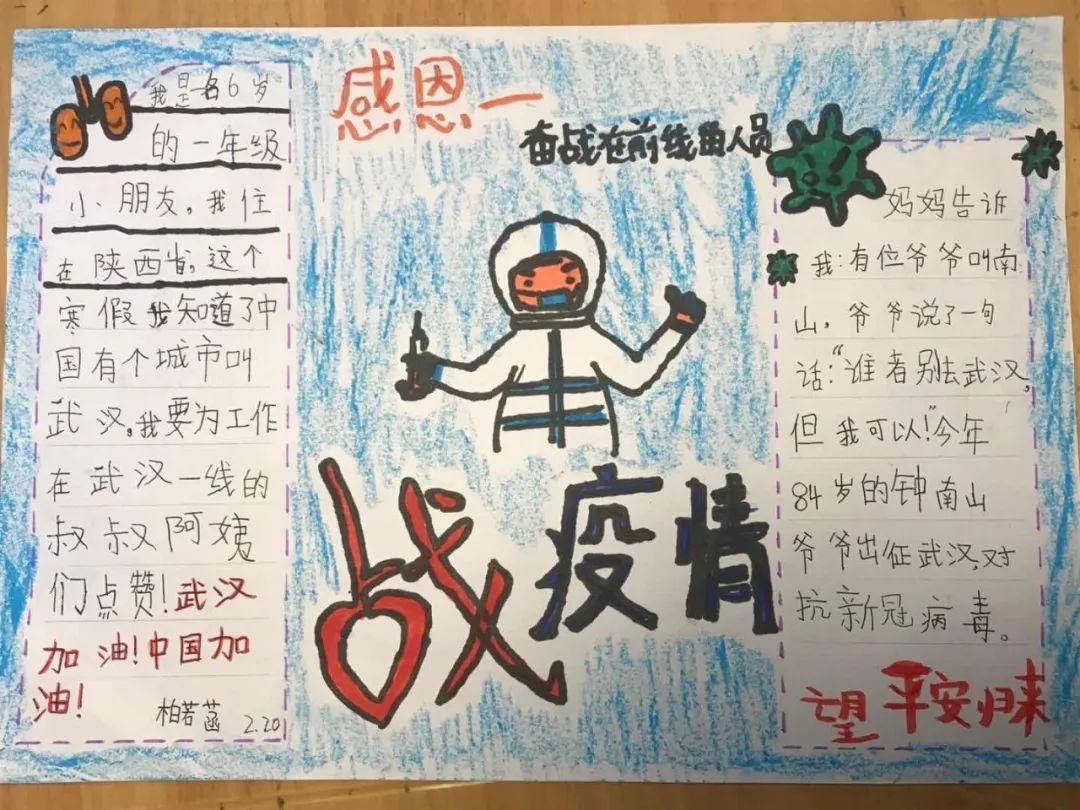 感恩一
奋战在前线的人员
我是名6岁
的一年级
小朋友，我住
在陕西省，这个
寒假我知道了中
国有个城市叫
武汉，我要为工作
在武汉一线的
叔叔阿姨
们点赞！武汉
加油！中国加
油！
柏若菡 2.20
战疫情
妈妈告诉
我：有位爷爷叫南
山，爷爷说了一句
话：“谁者别去武汉，
但我可以！”今年
84岁的钟南山
爷爷出征武汉，对
抗新冠病毒。
望平安归来